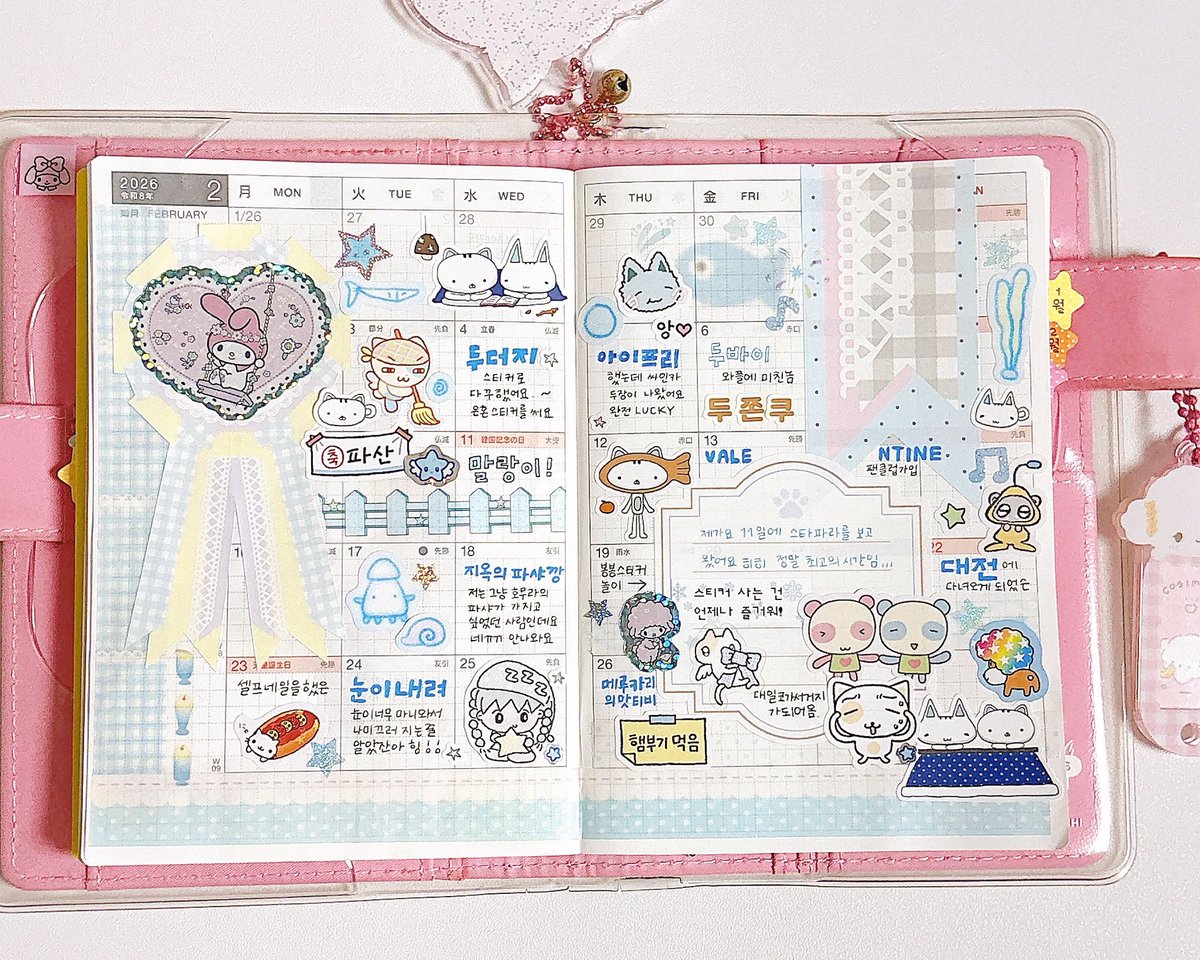 2026
令和8年
2
如月 FEBRUARY
月 MON
火 TUE
水 WED
木 THU
金 FRI
1/26
27
28
29
30
先勝
節分
先負
4 立春
仏滅
두더지
스티커로
다꾸했어요 ~
앙♡
아이프리
했는데 씨인가
두장이 나왔어요
완전 LUCKY
6
赤口
두바이
와플에 미친놈
두쫀쿠
1월
2월
祝 파산
仏滅
11 建国記念の日 大安
말랑이!
12 赤口
13 先勝
VALE
NTINE
팬클럽가입
先負
16
17
先勝
18 友引
지옥의 파샤깡
저는 그냥 호우라의
파샤가 가지고
싶었던 사람인데요
네ㄲㄲ 안나와요
19 雨水
봉봉스티커
놀이 →
제가요 11일에 스타파라를 보고
왔어요 히히 정말 최고의시간임...
스티커 사는 건
언제나 즐거워!
22
대전에
다녀오게 되었는
23 天皇誕生日 先勝
셀프네일을했은
24 友引
눈이내려
눈이너무 마니와서
나미끄러 지는줄
알았잔아 힝!!
25 先負
ZZZ
26
메루카리
의맛티비
햄부기 먹음
W
09